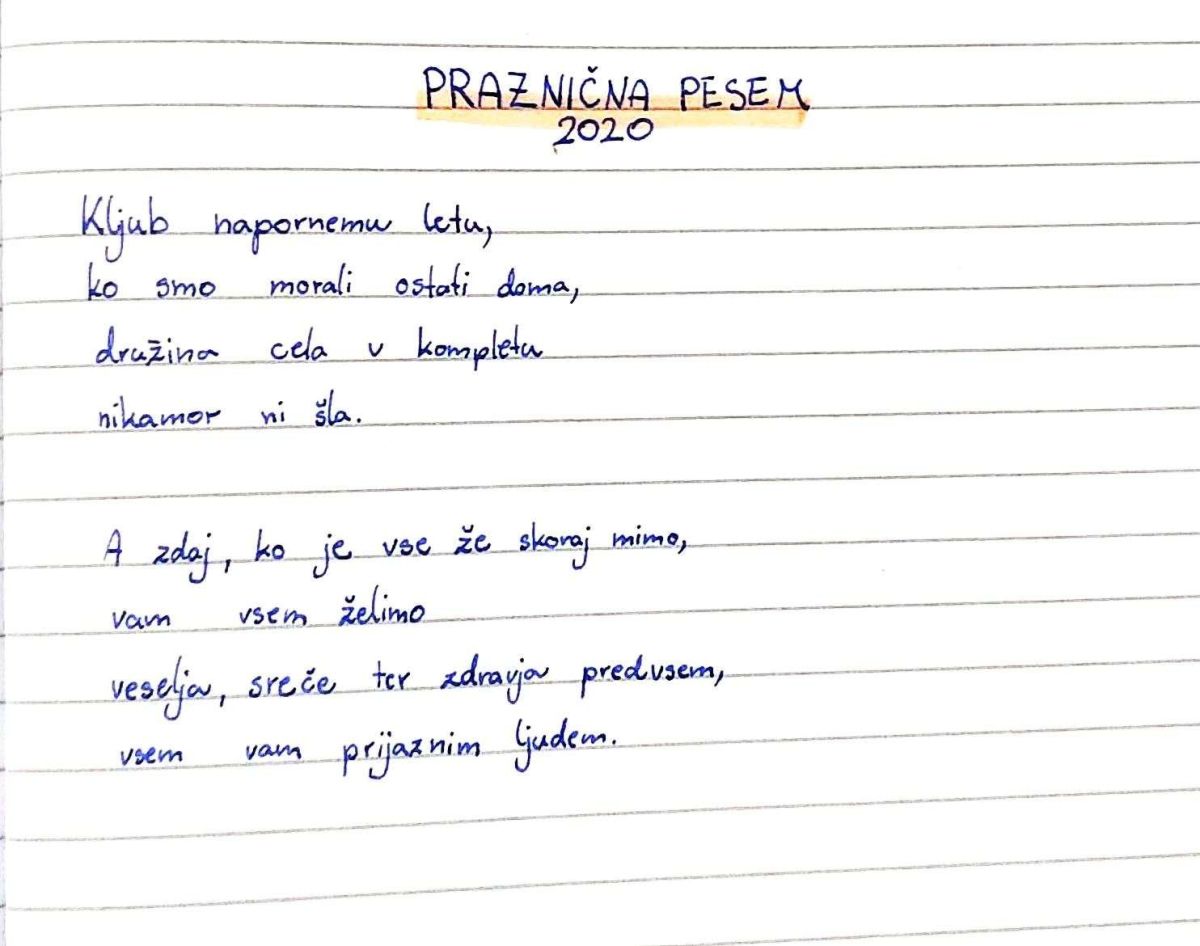 PRAZNIČNA PESEM
2020
Kljub napornemu letu,
ko smo morali ostati doma,
družina cela v kompletu
nikamor ni šla.
A zdaj, ko je vse že skoraj mimo,
vam vsem želimo
veselja, sreče ter zdravja predvsem,
vsem vam prijaznim ljudem.